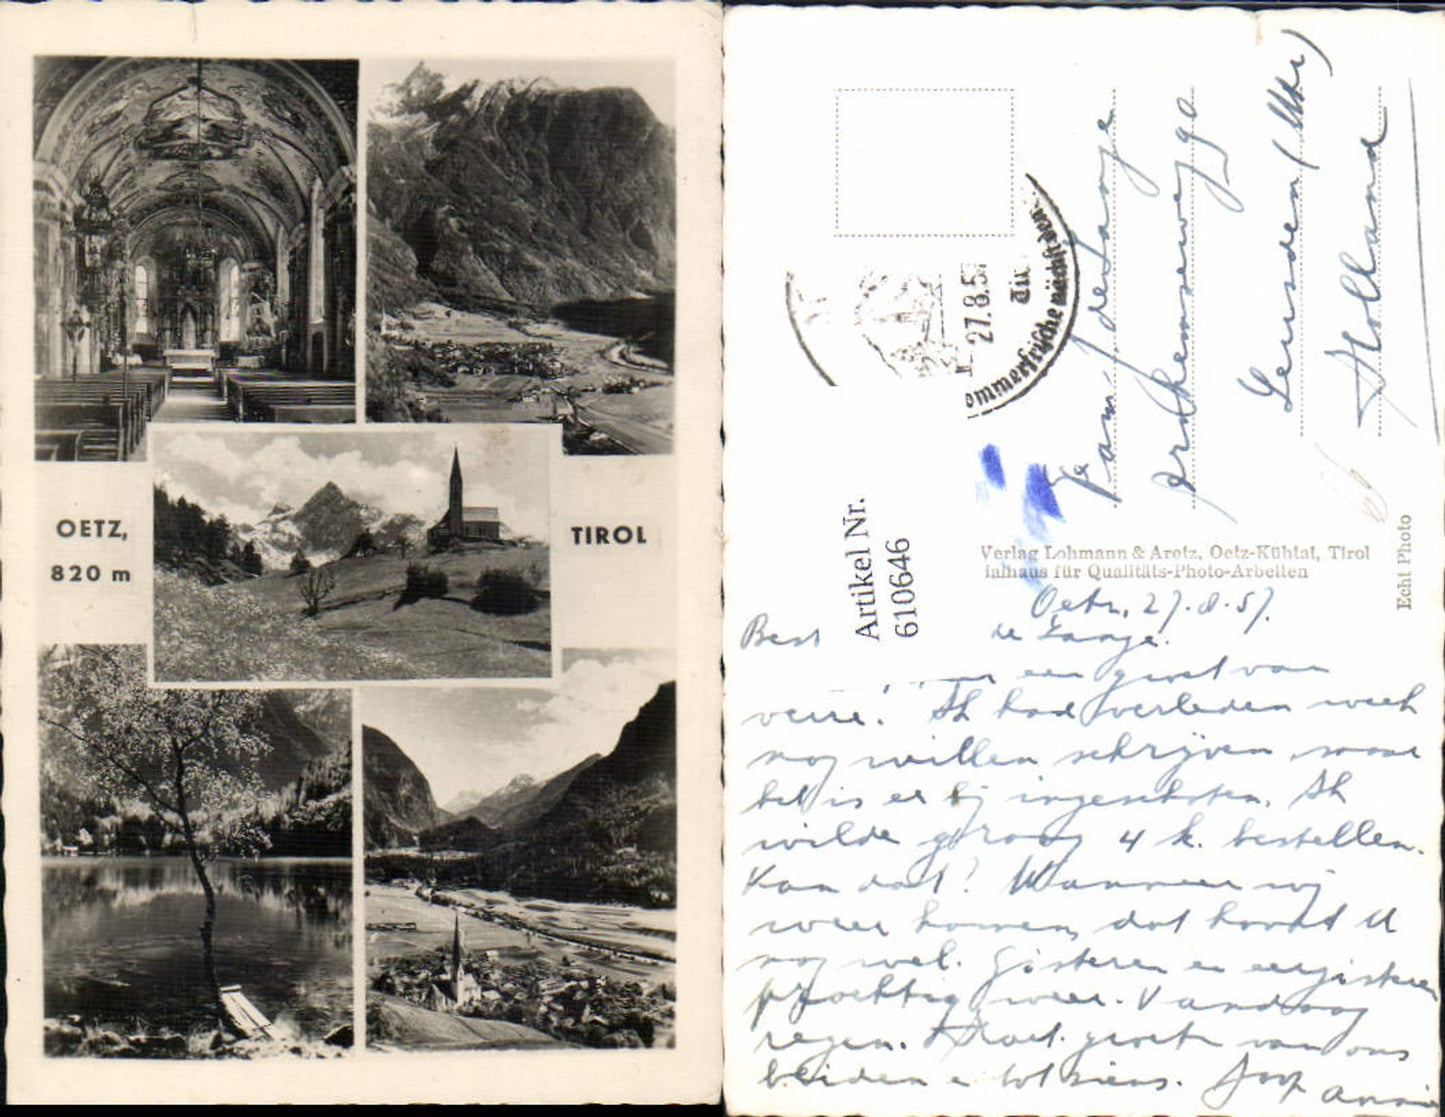 OETZ,
820 m
TIROL
27.8.57
ommerfrische
Fam. de Lange
Arnhemseweg 90
Leusden (Utr)
Holland
Artikel Nr.
610646
Verlag Lohmann & Aretz, Oetz-Kühtai, Tirol
ialhaus für Qualitäts-Photo-Arbeiten
Echt Photo
Oetz, 27.8.57.
Best de Lange.
een groet van
verre. Ik had verleden week
nog willen schrijven maar
het is er bij ingeschoten. Ik
wilde graag 4 k. bestellen.
Kan dat? Wanneer wij
weer komen, dat hoort U
nog wel. Gisteren en eergisteren
prachtig weer. Vandaag
regen. Hart. groeten van ons
beiden en tot ziens.
Annie